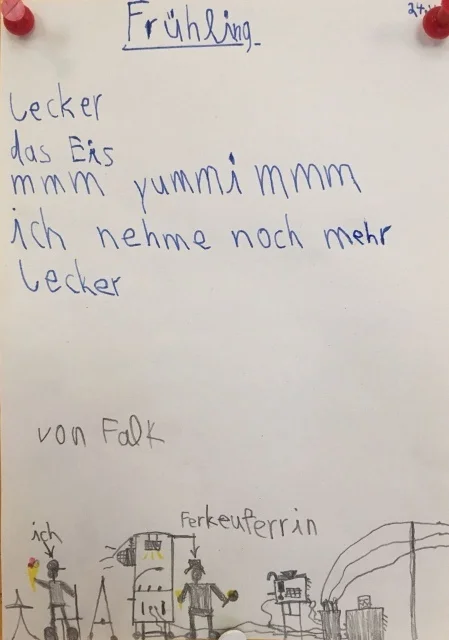 Frühling
Lecker
das Eis
mmm yummi mmm
ich nehme noch mehr
Lecker
von Falk
ich
Ferkeuferrin